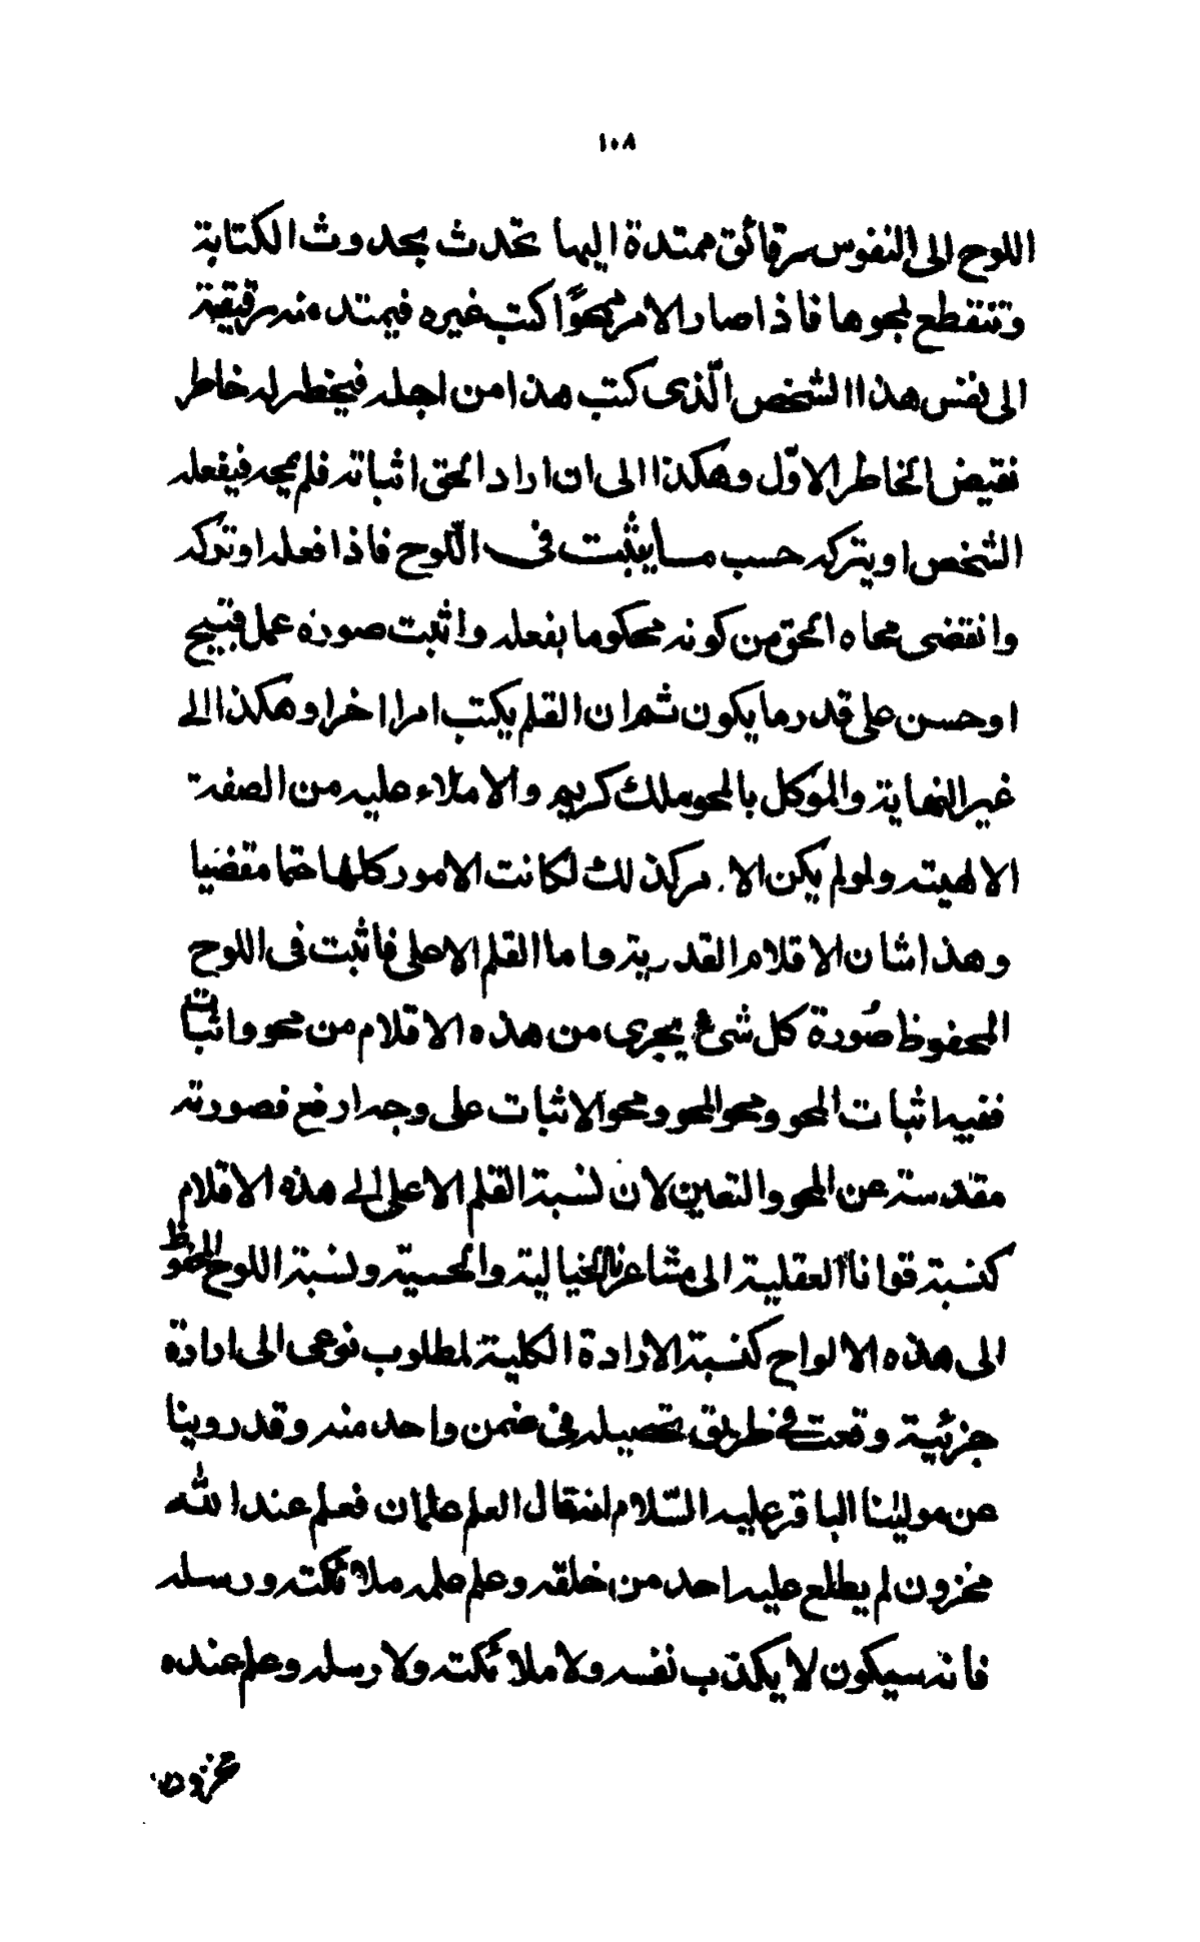 ١٠٨
اللوح الى النفوس رقائق ممتدة اليها تحدث بحدوث الكتابة
وتنقطع بمحوها فاذا صار الامر ممحوًّا كتب غيره فيمتد منه رقيقة
الى نفس هذا الشخص الّذى كتب هذا من اجله فيخطر له خاطر
نقيض الخاطر الاوّل وهكذا الى ان اراد الحق اثباته فلم يمحه فيفعله
الشخص او يتركه حسب ما يثبت فى اللّوح فاذا فعله او تركه
وانقضى محاه الحق من كونه محكوما بفعله واثبت صورة عمل قبيح
او حسن على قدر ما يكون ثم ان القلم يكتب امرا اخرا وهكذا الى
غير النهاية والموكل بالمحو ملك كريم والاملاء عليه من الصفة
الالهية ولو لم يكن الامر كذلك لكانت الامور كلها حتما مقضيا
وهذا شان الاقلام القدرية واما القلم الاعلى فاثبت فى اللوح
المحفوظ صُورة كل شئ يجرى من هذه الاقلام من محو واثبات
ففيه اثبات المحو ومحو المحو ومحو الاثبات على وجه ارفع فصورته
مقدسة عن المحو والتعين لان نسبة القلم الاعلى الى هذه الاقلام
كنسبة قوانا العقلية الى مشاعرنا الخيالية والحسية ونسبة اللوح المحفوظ
الى هذه الالواح كنسبة الارادة الكلية لمطلوب نوعى الى ارادة
جزئية وقعت فى طريق تحصيله فى ضمن واحد منه وقد روينا
عن مولينا الباقر عليه السّلام انه قال العلم علمان فعلم عند الله
مخزون لم يطلع عليه احد من خلقه وعلم علمه ملائكته ورسله
فانه سيكون لا يكذب نفسه ولا ملائكته ولا رسله وعلم عنده
مخزون